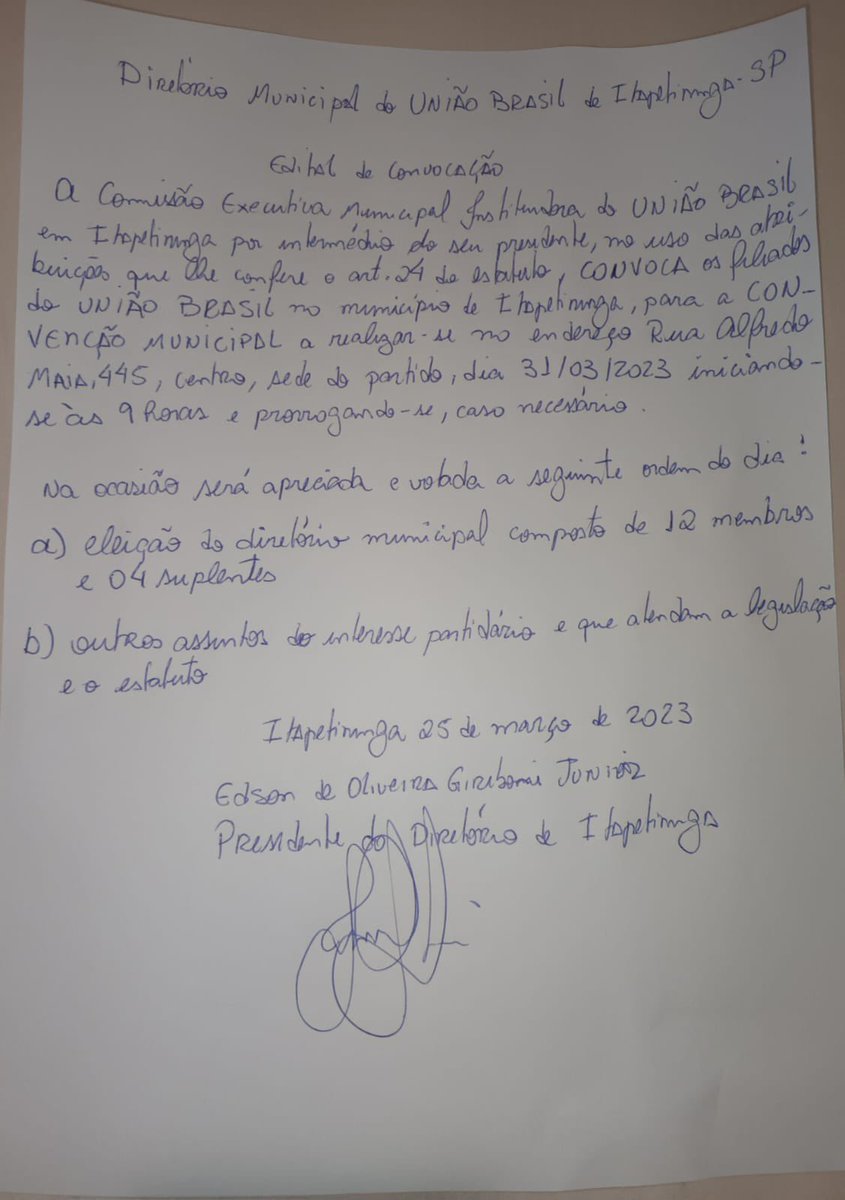 Diretório Municipal do UNIÃO BRASIL de Itapetininga-SP
Edital de Convocação
A Comissão Executiva Municipal Instituidora do UNIÃO BRASIL
em Itapetininga por intermédio do seu presidente, no uso das atri-
buições que lhe confere o art. 24 do estatuto, CONVOCA os filiados
do UNIÃO BRASIL no município de Itapetininga, para a CON-
VENÇÃO MUNICIPAL a realizar-se no endereço Rua Alfredo
MAIA, 445, centro, sede do partido, dia 31/03/2023 iniciando-
se às 9 horas e prorrogando-se, caso necessário.
Na ocasião será apreciada e votada a seguinte ordem do dia:
a) eleição do diretório municipal composto de 12 membros
e 04 suplentes
b) outros assuntos do interesse partidário e que atendam a legislação
e o estatuto
Itapetininga 25 de março de 2023
Edson de Oliveira Giriboni JUNIOR
Presidente do Diretório de Itapetininga